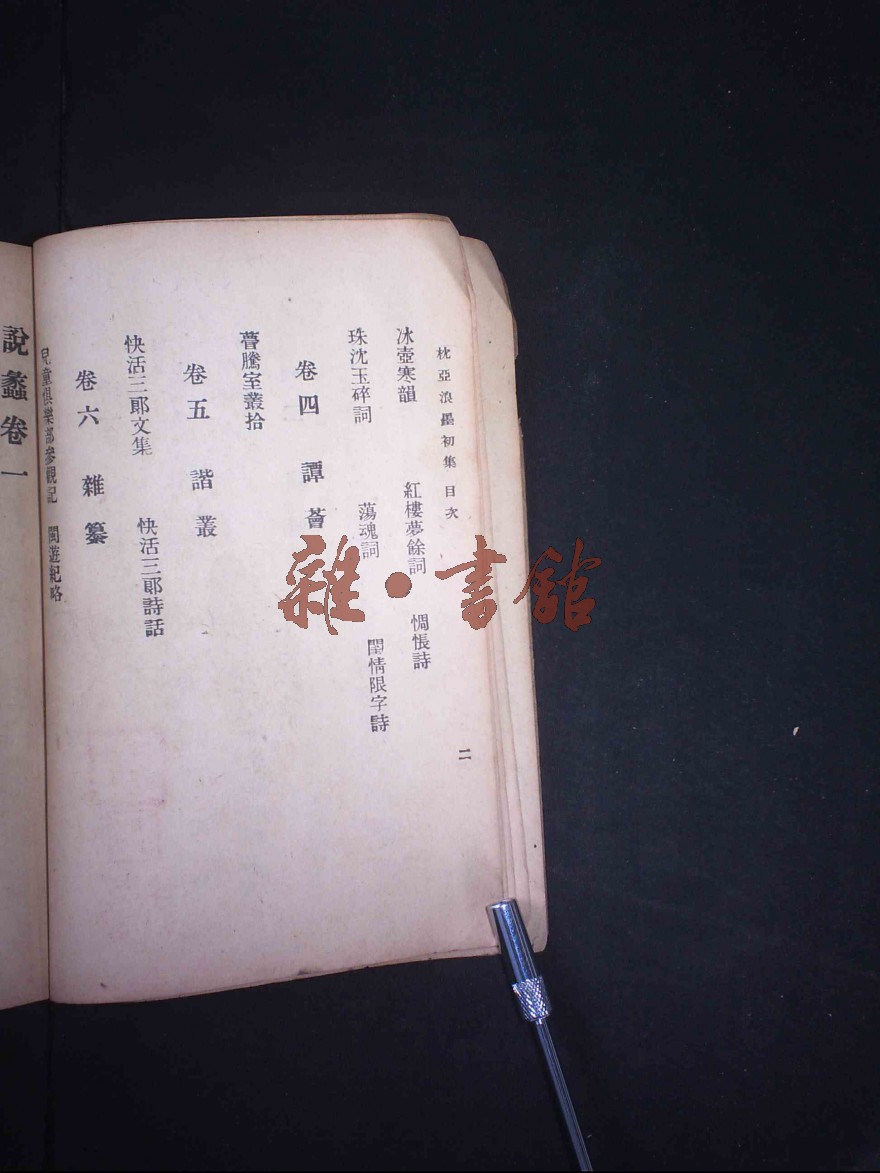 枕亞浪墨初集 目次 二
冰壺寒韻 紅樓夢餘詞 惆悵詩
珠沈玉碎詞 蕩魂詞 閨情限字詩
卷四 譚薈
瞢騰室叢拾
卷五 諧叢
快活三郎文集 快活三郎詩話
卷六 雜纂
兒童俱樂部參觀記 閩遊紀略
說蠡卷一
雜·書館